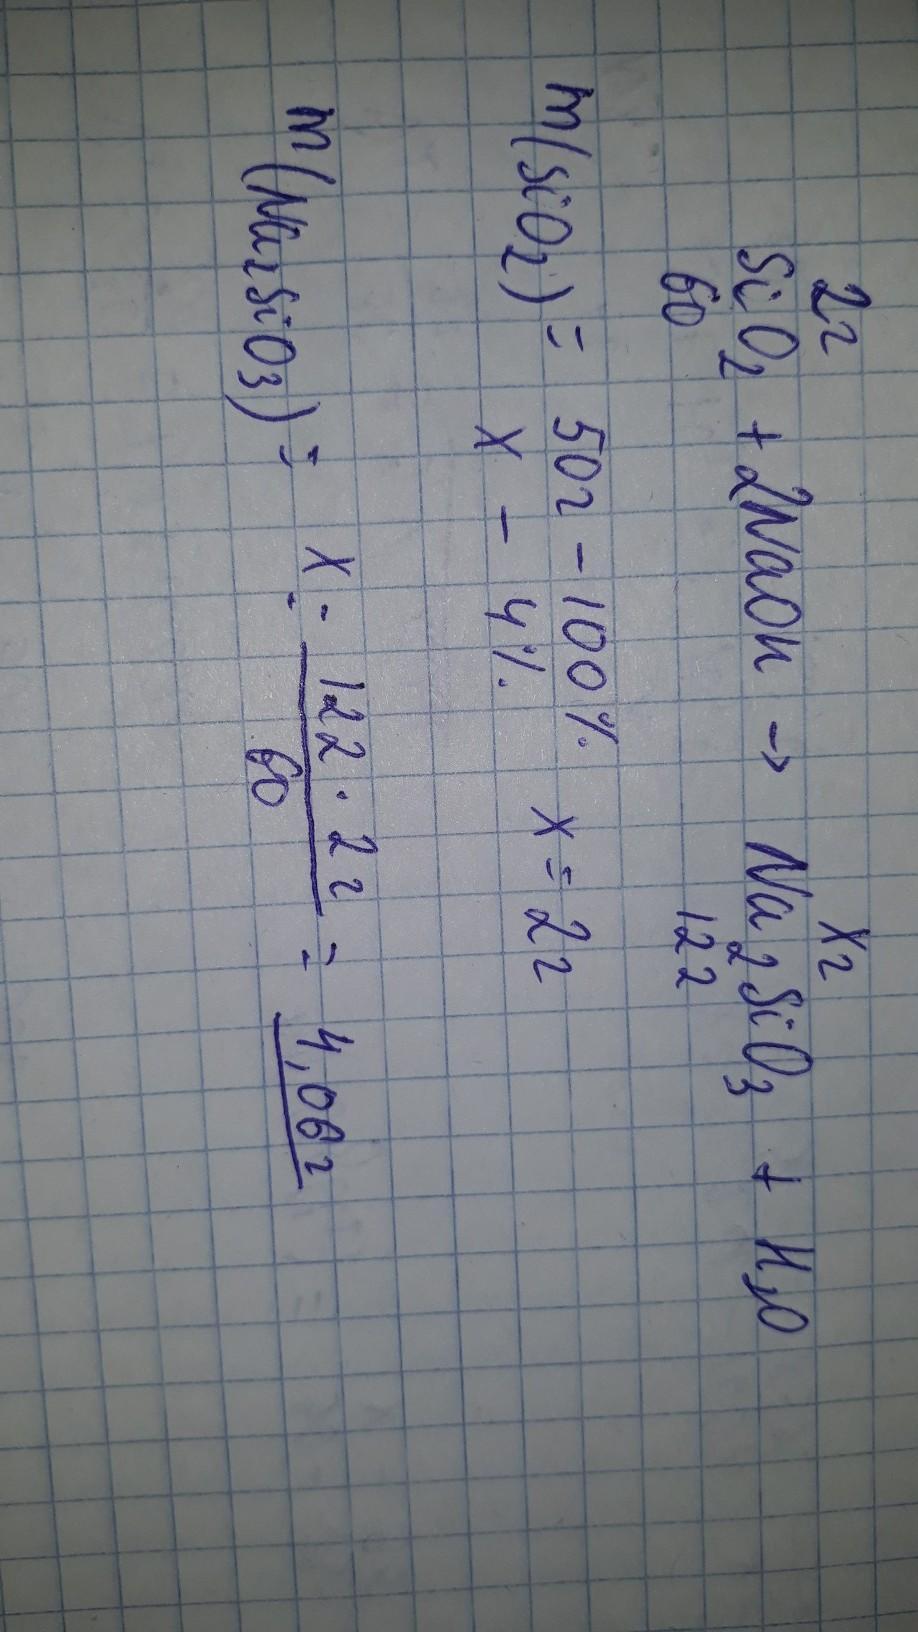 2г Xг
SiO₂ + 2NaOH → Na₂SiO₃ + H₂O
60 122
m(SiO₂) = 50г - 100% x = 2г
X - 4%
m(Na₂SiO₃) =
X = 122 · 2г / 60 = 4,06г